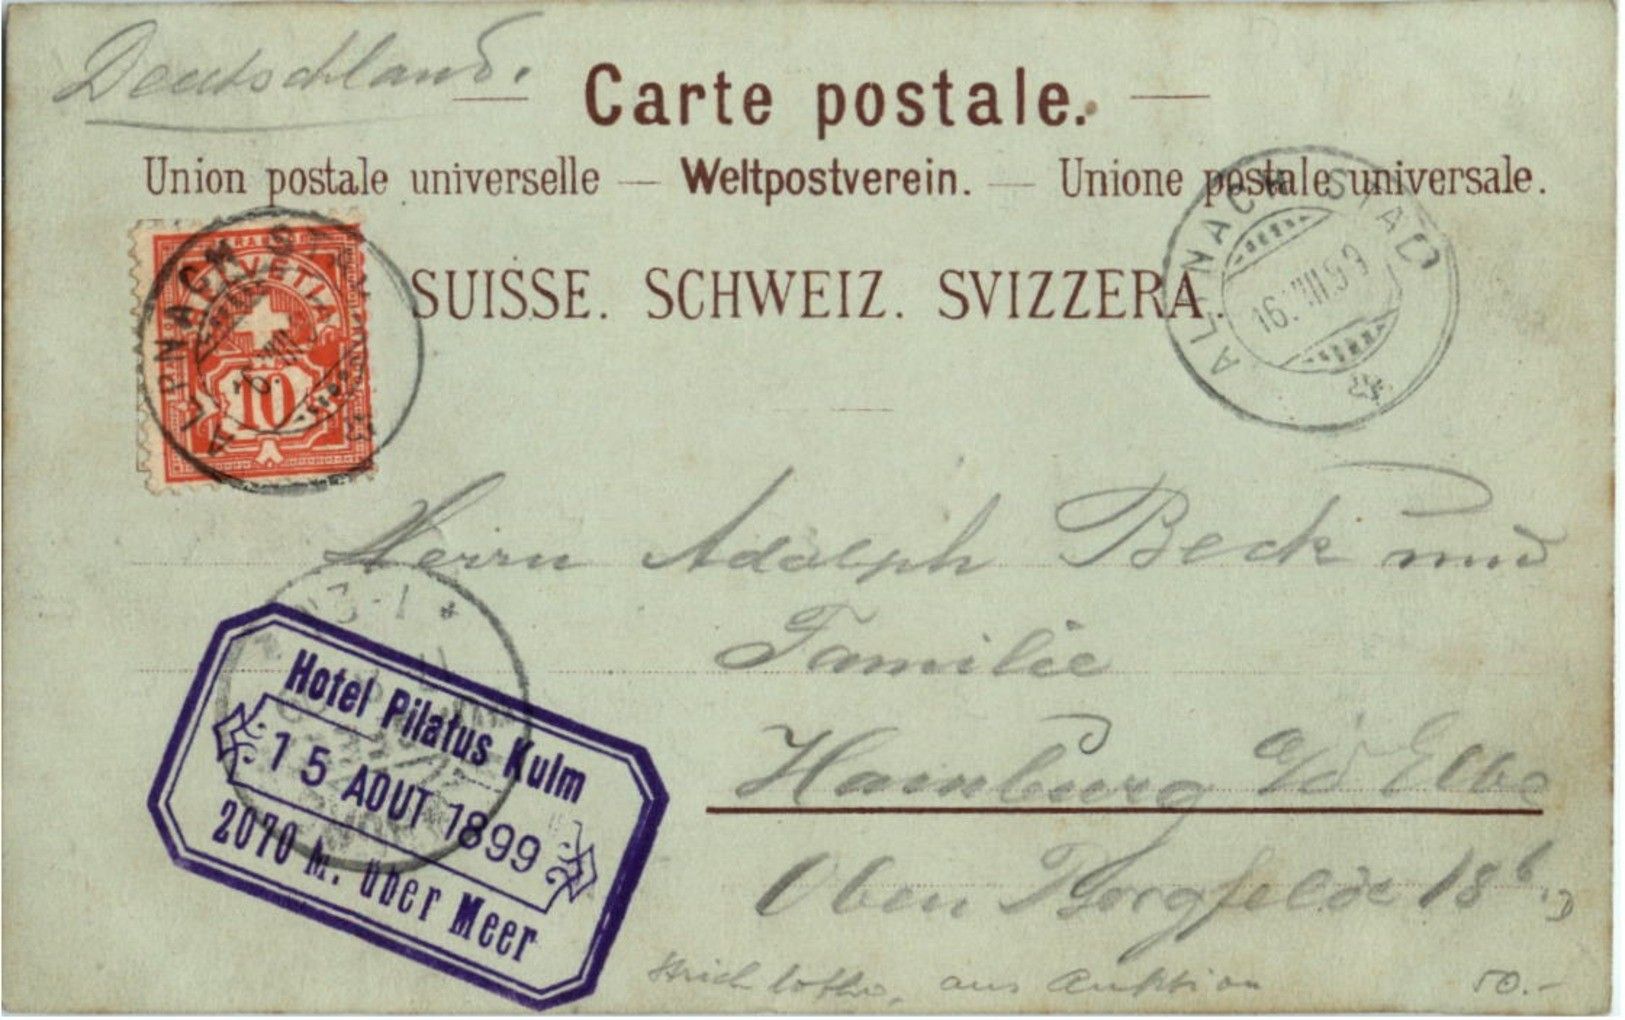 Deutschland.
Carte postale.
Union postale universelle — Weltpostverein. — Unione postale universale.
HELVETIA
10
ALPNACH S
16. VIII
SUISSE. SCHWEIZ. SVIZZERA.
ALPNACH STAD
16. VIII. 99
Herrn Adolph Beck und
Familie
Hamburg a/d Elbe
Oben Borgfelde 18 b.
Hotel Pilatus Kulm
15 AOUT 1899
2070 M. über Meer
aus Auktion 50.-